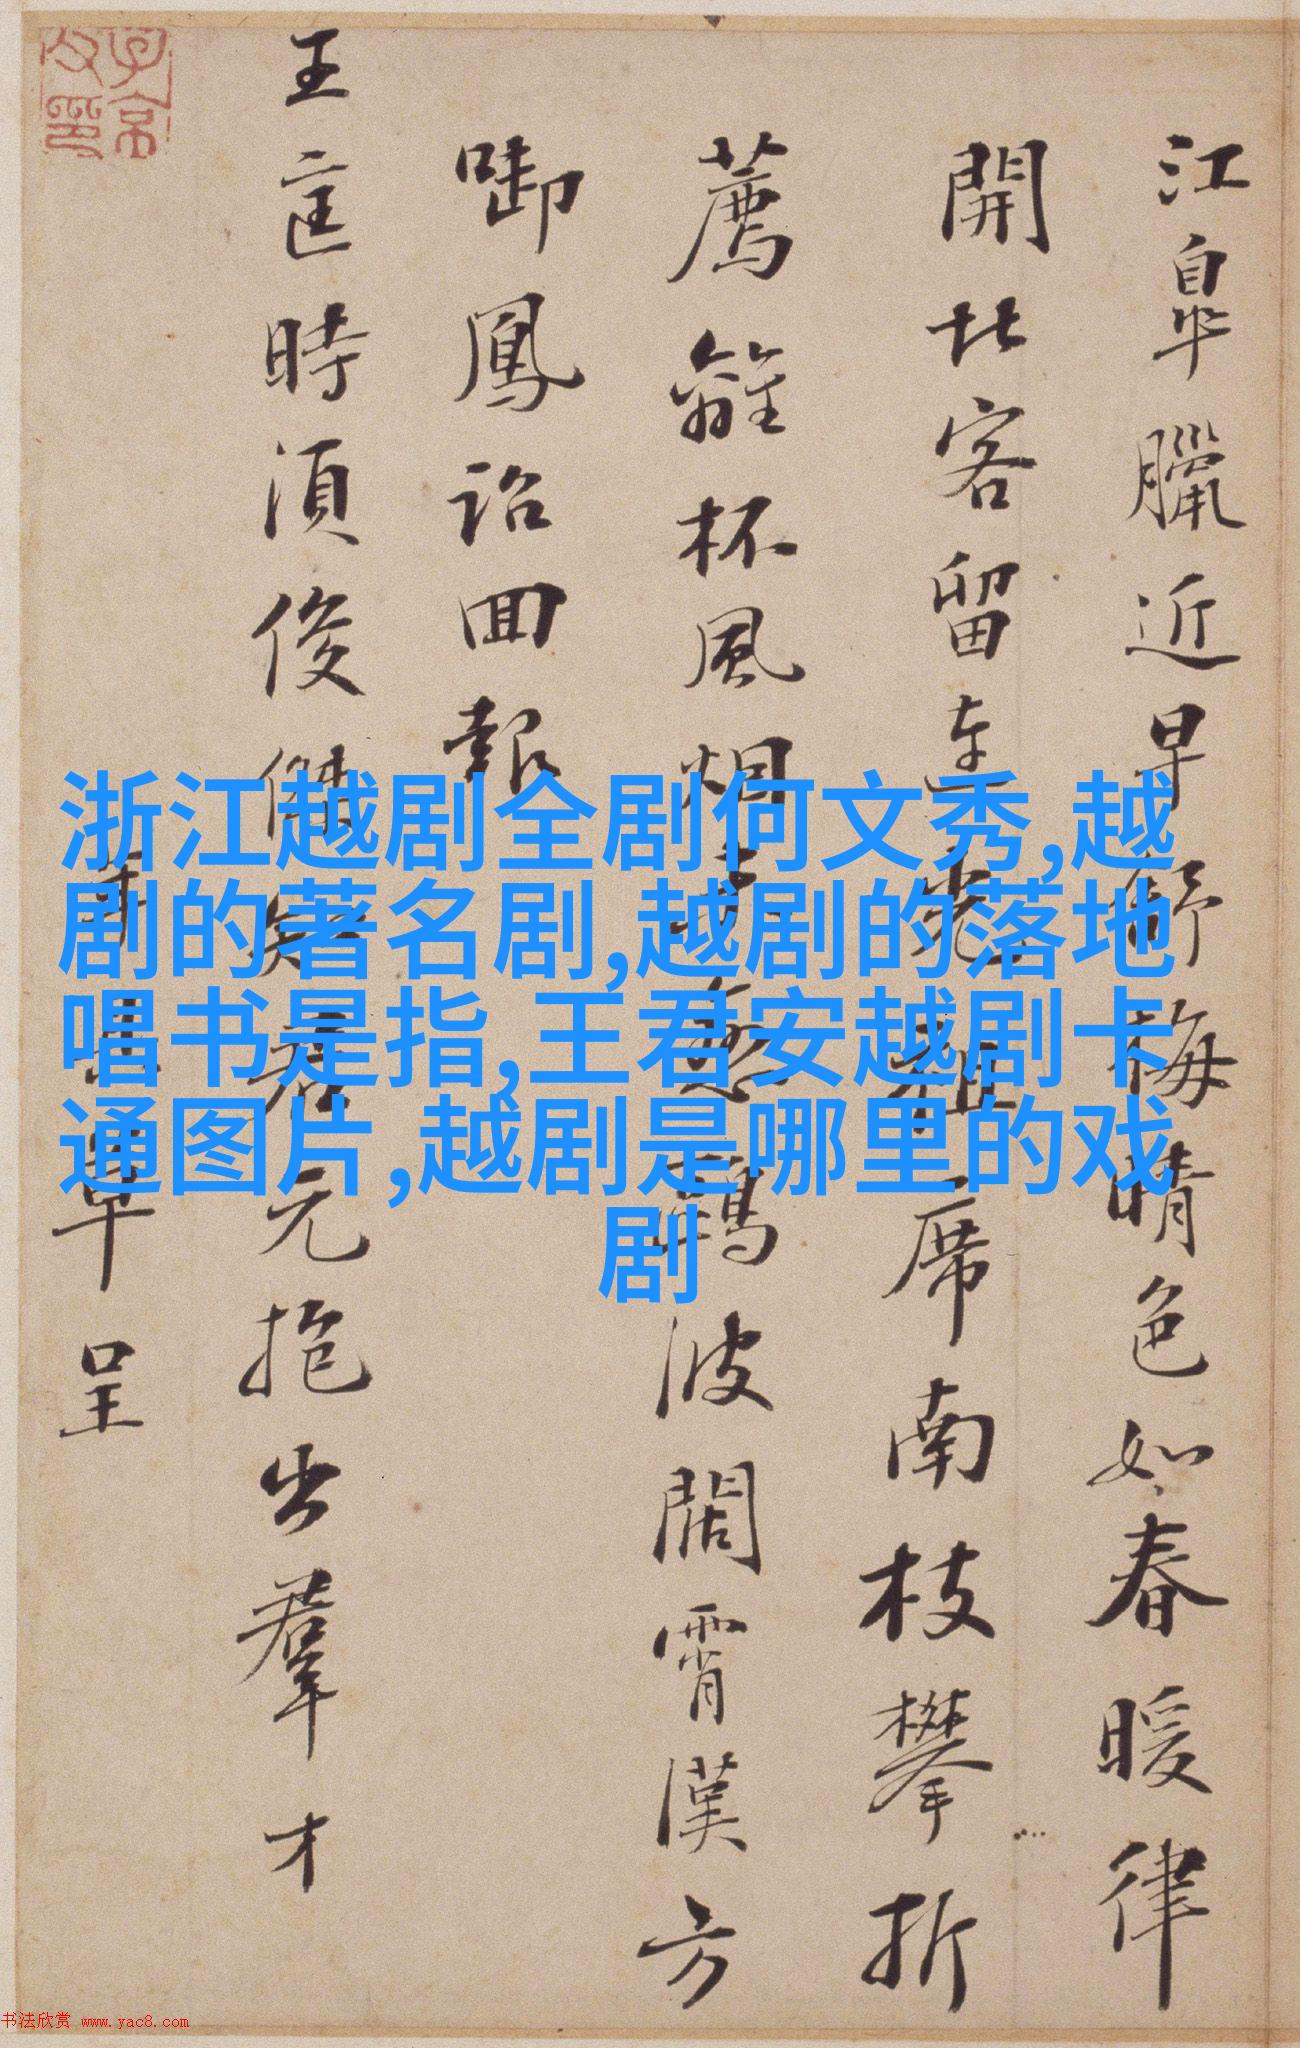 浙江越剧全剧何文秀,越
剧的著名剧,越剧的落地
唱书是指,王君安越剧卡
通图片,越剧是哪里的戏
剧
江皐臘近早舒梅晴色如春暖律
開北客留連祖席南枝攀折
薦離杯風烟波闊霄漢方
啣鳳詔回報
王時須俊傑元抱出羣才
草呈
子京父印
书法欣赏 www.yac8.com